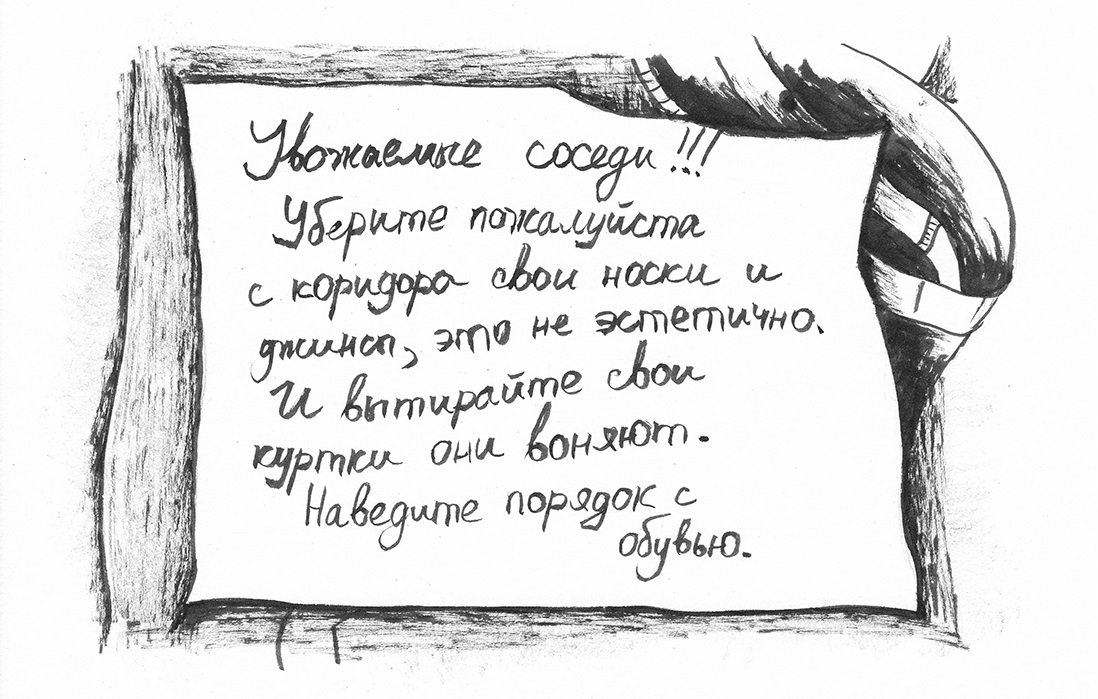 Увожаемые соседи!!!
Уберите пожалуйста
с коридора свои носки и
джинсы, это не эстетично.
И вытирайте свои
куртки они воняют.
Наведите порядок с
обувью.